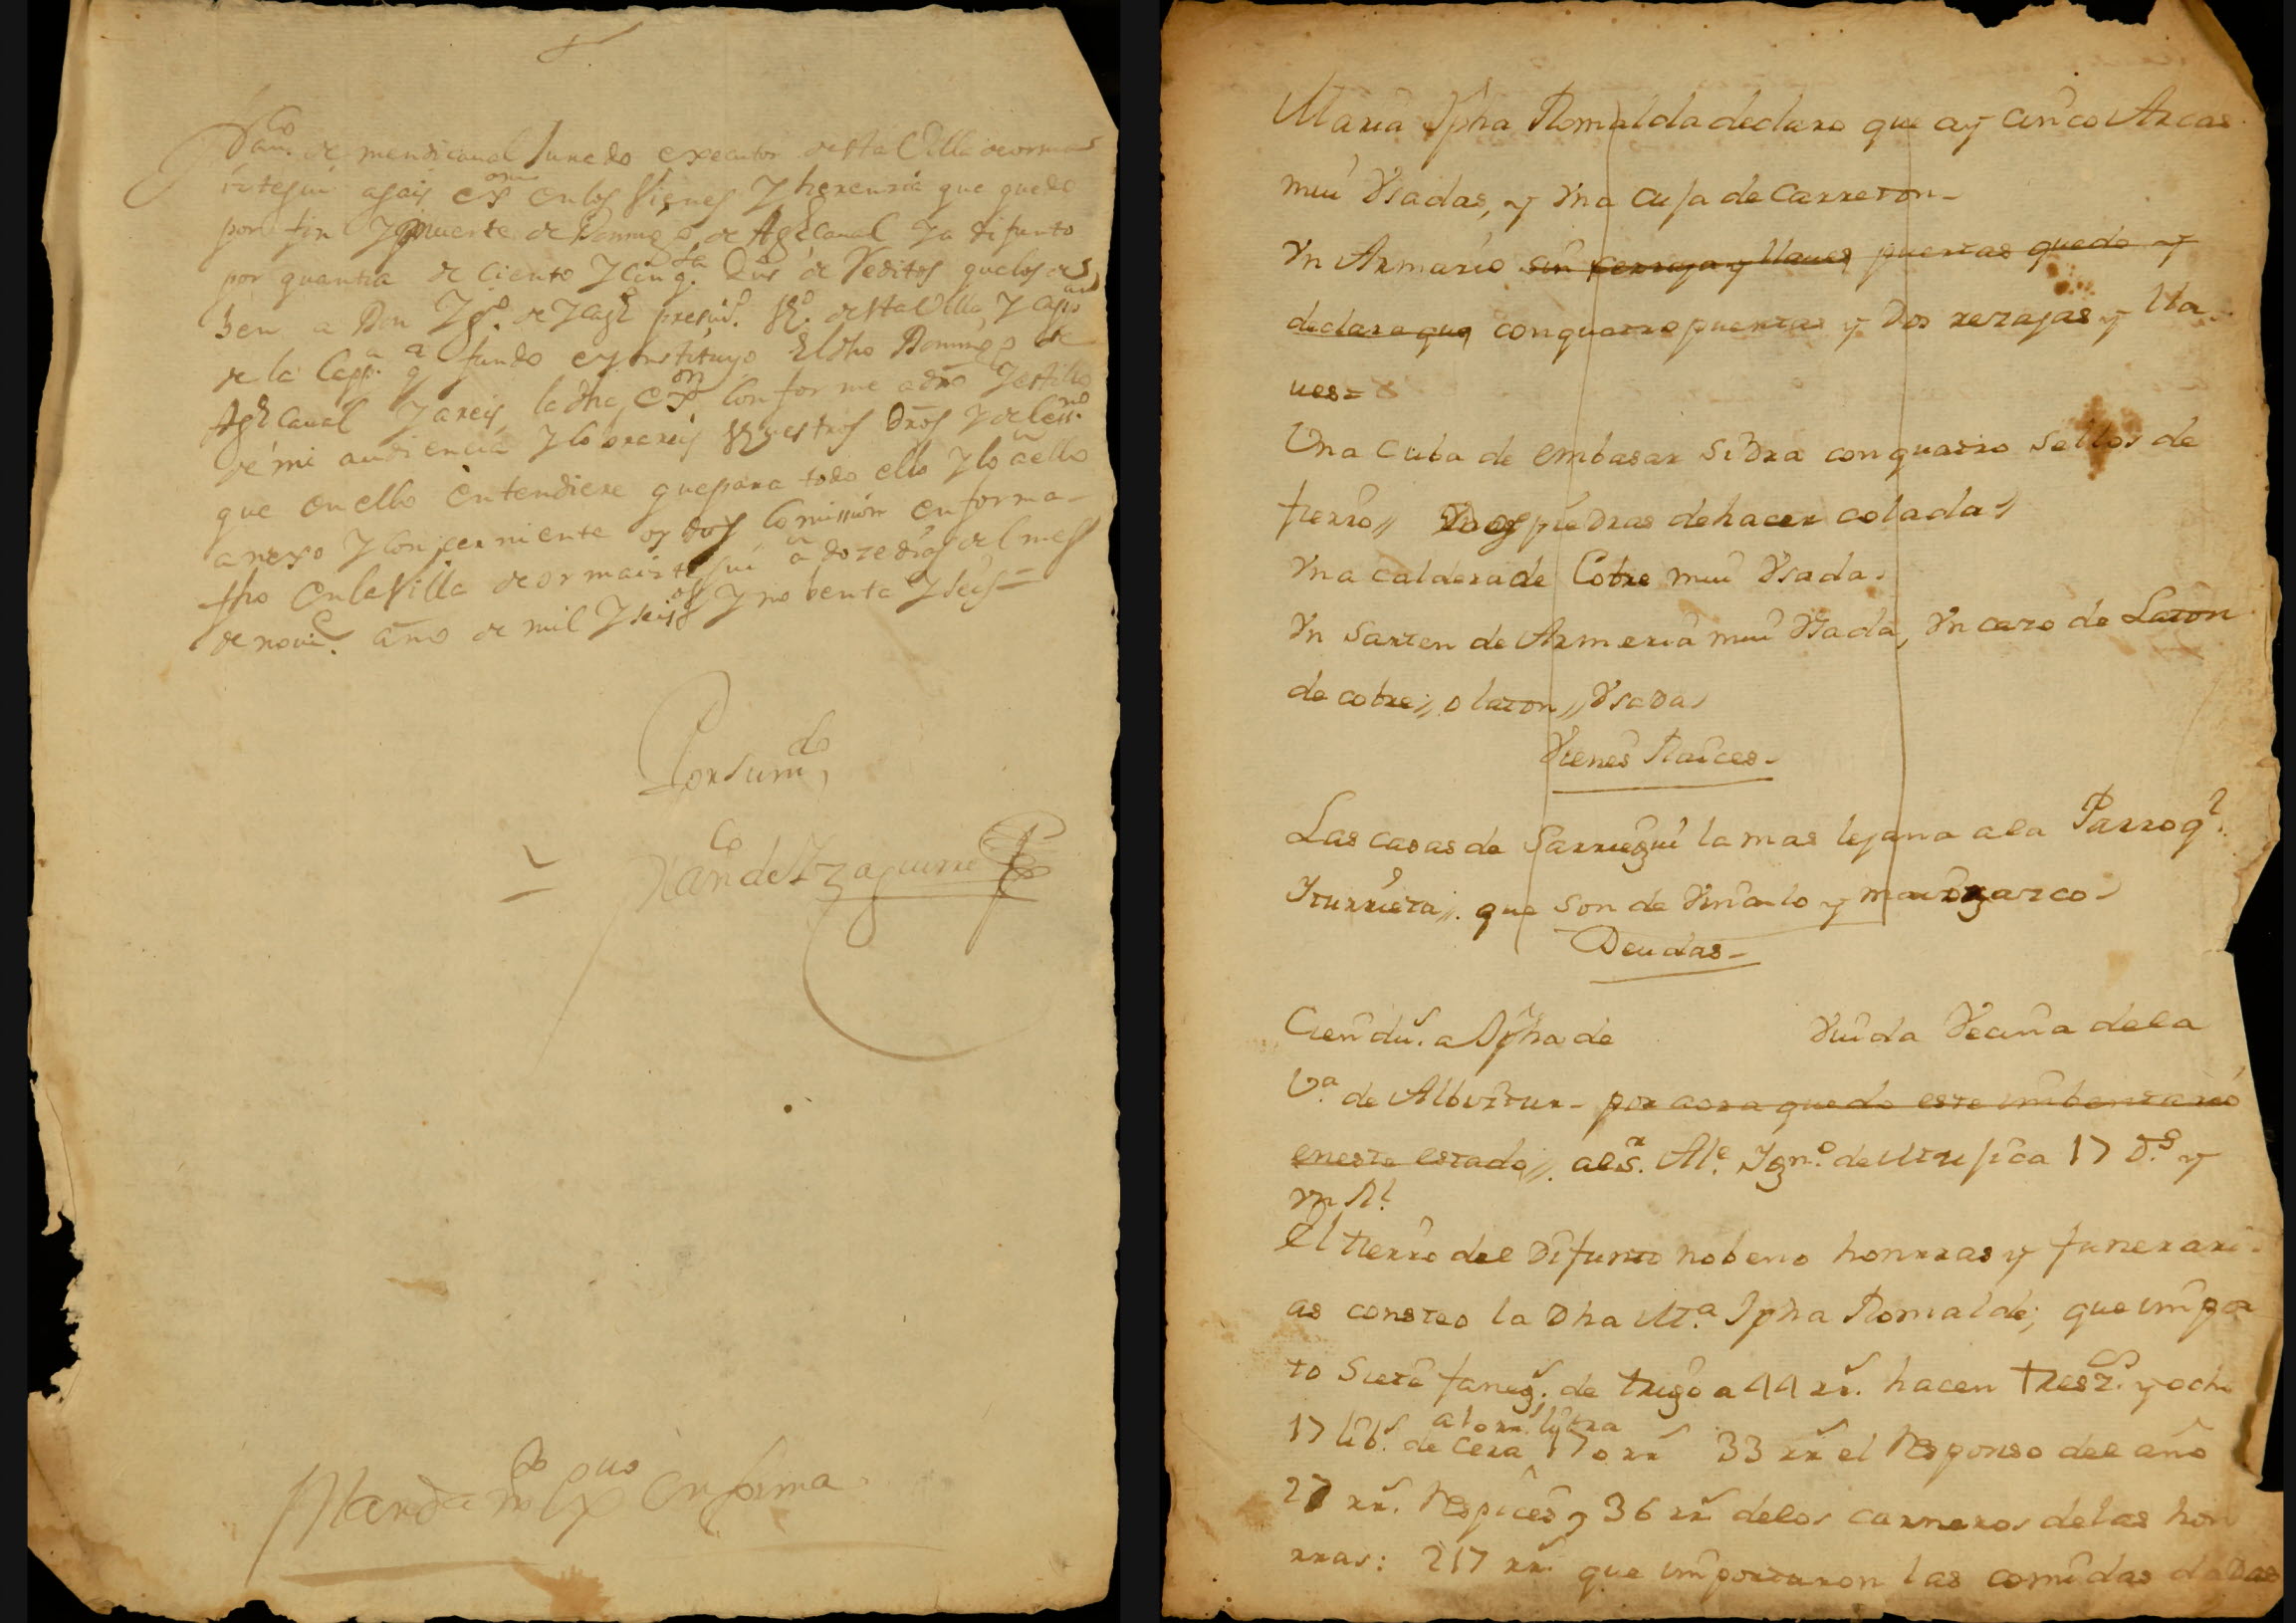 Franco. de mendicaual Jurado executor desta Villa de orma
iztegui agais exon en los Vienes y herenzia que quedo
por fin y muerte de Domingo de Agrecaual ya difunto
por quantia de Ciento y cinqta. Dus. de Reditos que los de
ben a Don
de la Capp.a q fundo e ynstituyo El dho Domingo de
Caual y areis, la dha, exon conforme a dro y estillo
de mi audiencia y cobrareis Vuestros Dros y del essno
que en ello entendiere que para todo ello y lo a ello
anexo y conzerniente os doy Comission en forma
fho en la Villa de ormaiztegui a doze dias del mes
de nove. año de mil y seisos y nobenta y seis =
Por su mdo,
Franco de Yzaguirre
Mandamto exuo en forma
Maria Jpha Romalda declaro que ay cinco Arcas
mui Vsadas, y Vna cuja de Carreton -
Vn Armario sin cerraja y llaues puertas quedo y
declara que con quatro puertas y Dos zerajas y lla
ues =
Una Cuba de embasar siDra con quatro sellos de
fierro,, Dos pieDras de hacer colada,
Vna caldera de Cobre mui Vsada.
Vn sarten de Armeria mui Vsada, Vn cazo de Laton
de cobre,, o laton,, VsaDa,
Vienes Raices -
Las casas de Sarriegui la mas lejana a la Parroq.l
Yturrieta,. que son de Vinculo y maiorazco.
Deudas -
Cien du.s a Jpha de Viuda Vecina de la
V.a de Albiztur - por aora quedo este imbentario
en este estado,,. al s.r Al.e Ygn.o de 17 D.s y
vn R.l
El tierro del Difunto nobeno honrras y funerari
as consteo la Dha M.a Jpha Romalda; que impor
to Siete faneg.s de trigo a 44 rr.s hacen tresz.os y ocho
17 lib.s de Cera a 10 rr.s lybra 170 rr.s 33 rr.s el Responso del año
27 rr.s Respices y 36 rr.s de los carneros de las hon
rras: 217 rr.s que importaron las comidas daDas